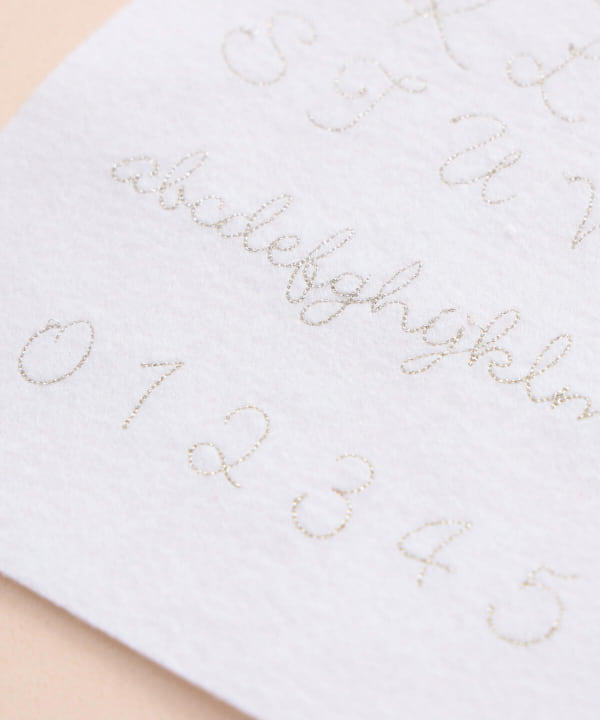 K L
S T U V
abcdefghijklm
0 1 2 3 4 5